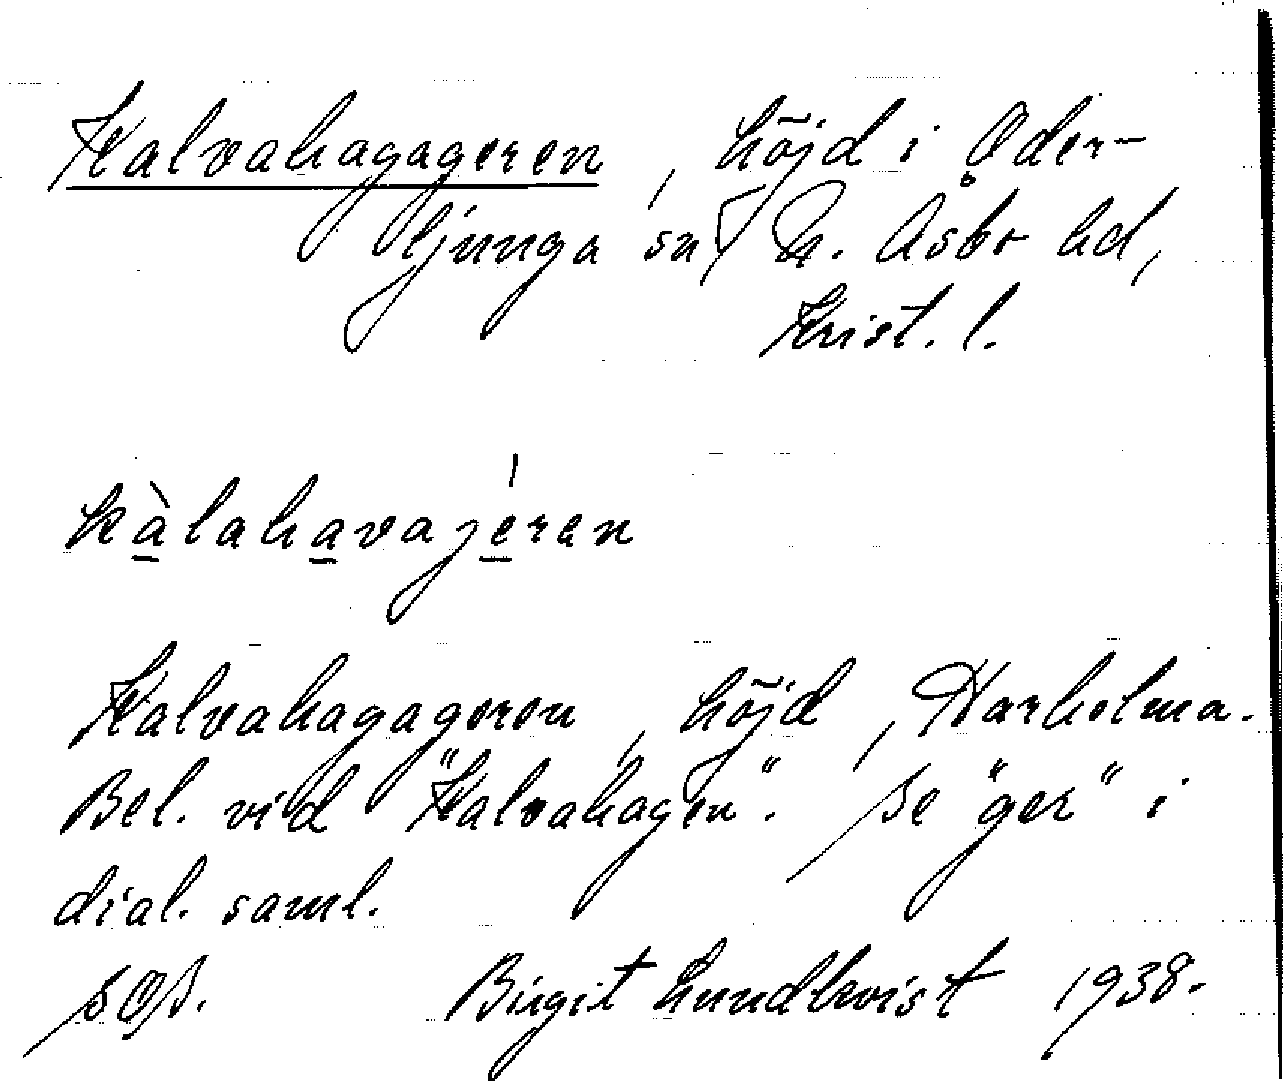 Kalvahagageren, höjd i Oder-
ljunga sn, N. Åsbo hd,
Krist. l.
kàlahavajéren
Kalvahagageren, höjd, Harholma.
Bel. vid "Kalvahagen". Se "ger" i
dial. saml.
Birgit Lundkvist 1938.